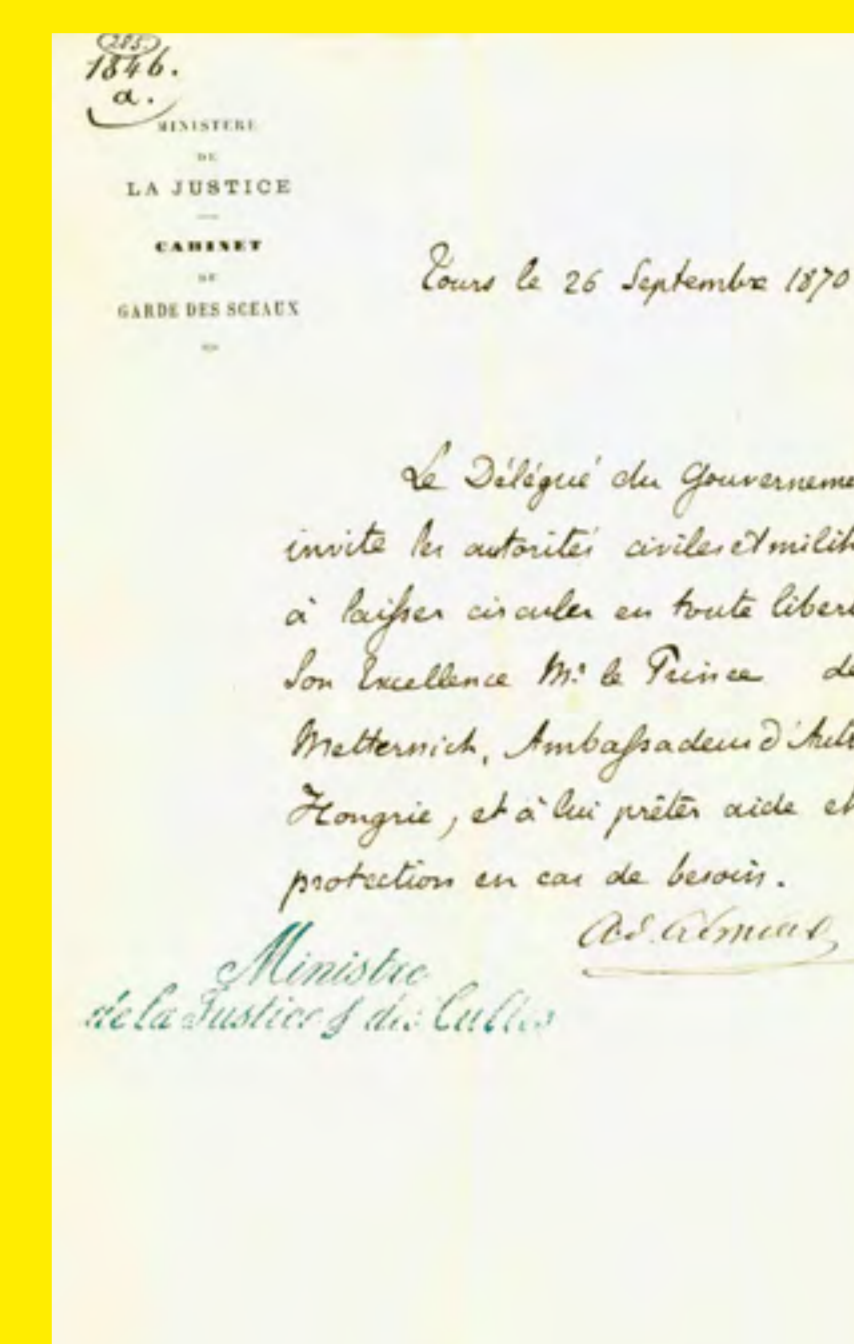 285
1846.
a.
MINISTERE
DE
LA JUSTICE
CABINET
DU
GARDE DES SCEAUX
Tours le 26 Septembre 1870
Le Délégué du Gouverneme
invite les autorités civiles et milit
à laisser circuler en toute libert
Son Excellence Mr. le Prince de
Metternich, Ambassadeur d'Autr
Hongrie, et à lui prêter aide et
protection en cas de besoin.
Ad. Crémieux
Ministre
de la Justice & des Cultes